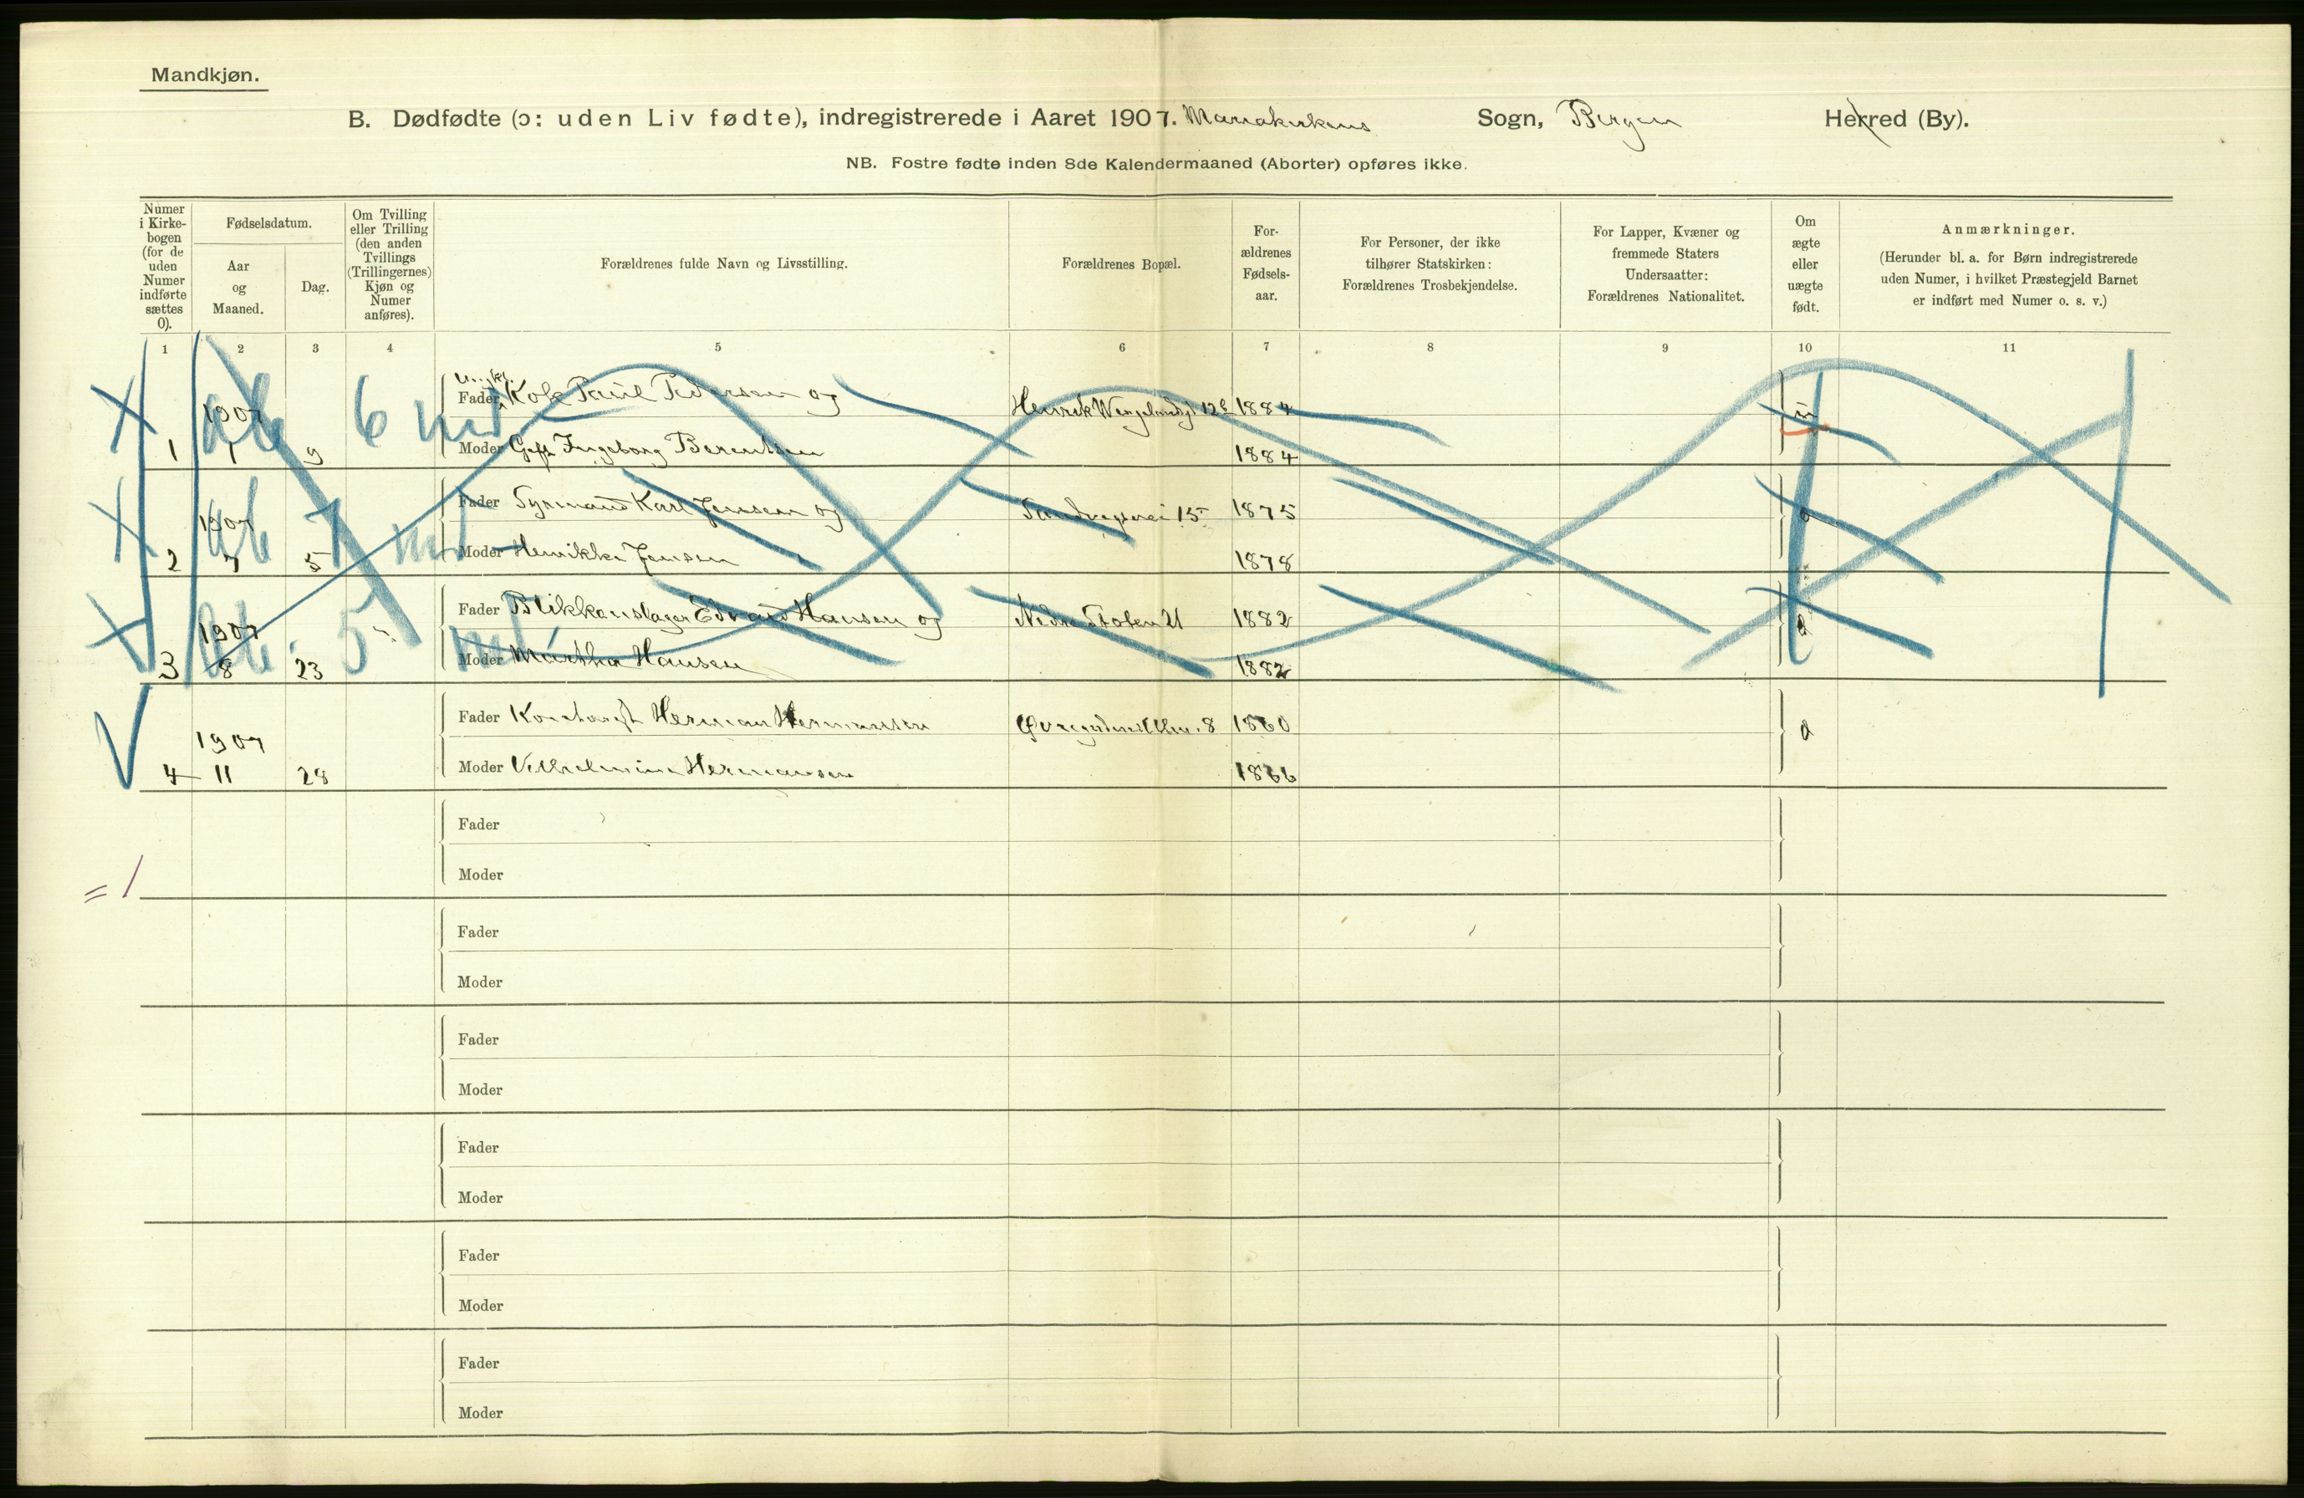 Mandkjøn.
B. Dødfødte (ɔ: uden Liv fødte), indregistrerede i Aaret 1907. Mariakirkens Sogn, Bergen Herred (By).
NB. Fostre fødte inden 8de Kalendermaaned (Aborter) opføres ikke.
Numer
i Kirke-
bogen
(for de
uden
Numer
indførte
sættes
0).
Fødselsdatum.
Aar
og
Maaned.
Dag.
Om Tvilling
eller Trilling
(den anden
Tvillings
(Trillingernes)
Kjøn og
Numer
anføres).
Forældrenes fulde Navn og Livsstilling.
Forældrenes Bopæl.
For-
ældrenes
Fødsels-
aar.
For Personer, der ikke
tilhører Statskirken:
Forældrenes Trosbekjendelse.
For Lapper, Kvæner og
fremmede Staters
Undersaatter:
Forældrenes Nationalitet.
Om
ægte
eller
uægte
født.
Anmærkninger.
(Herunder bl. a. for Børn indregistrerede
uden Numer, i hvilket Præstegjeld Barnet
er indført med Numer o. s. v.)
1 2 3 4 5 6 7 8 9 10 11
Ungk.
1907 ab 6 md Fader Kok Paul Pedersen og Henrik Wergelandsgt 12 1884 u
1 1 9 Moder Ingeborg Berentsen 1884
1907 ab 7 md Fader Fyrmand Karl Jensen og Sandvigsvei 15 1875
2 7 5 Moder Henrikke Jensen 1878
1907 ab 5 md Fader Blikkenslager Edvard Hansen og Nedre Stolen 21 1882
3 8 23 Moder Martha Hansen 1882
1907 Fader Herman Hermansen 8 1860
4 11 28 Moder Vilhelmine Hermansen 1866
Fader
Moder
= 1
Fader
Moder
Fader
Moder
Fader
Moder
Fader
Moder
Fader
Moder